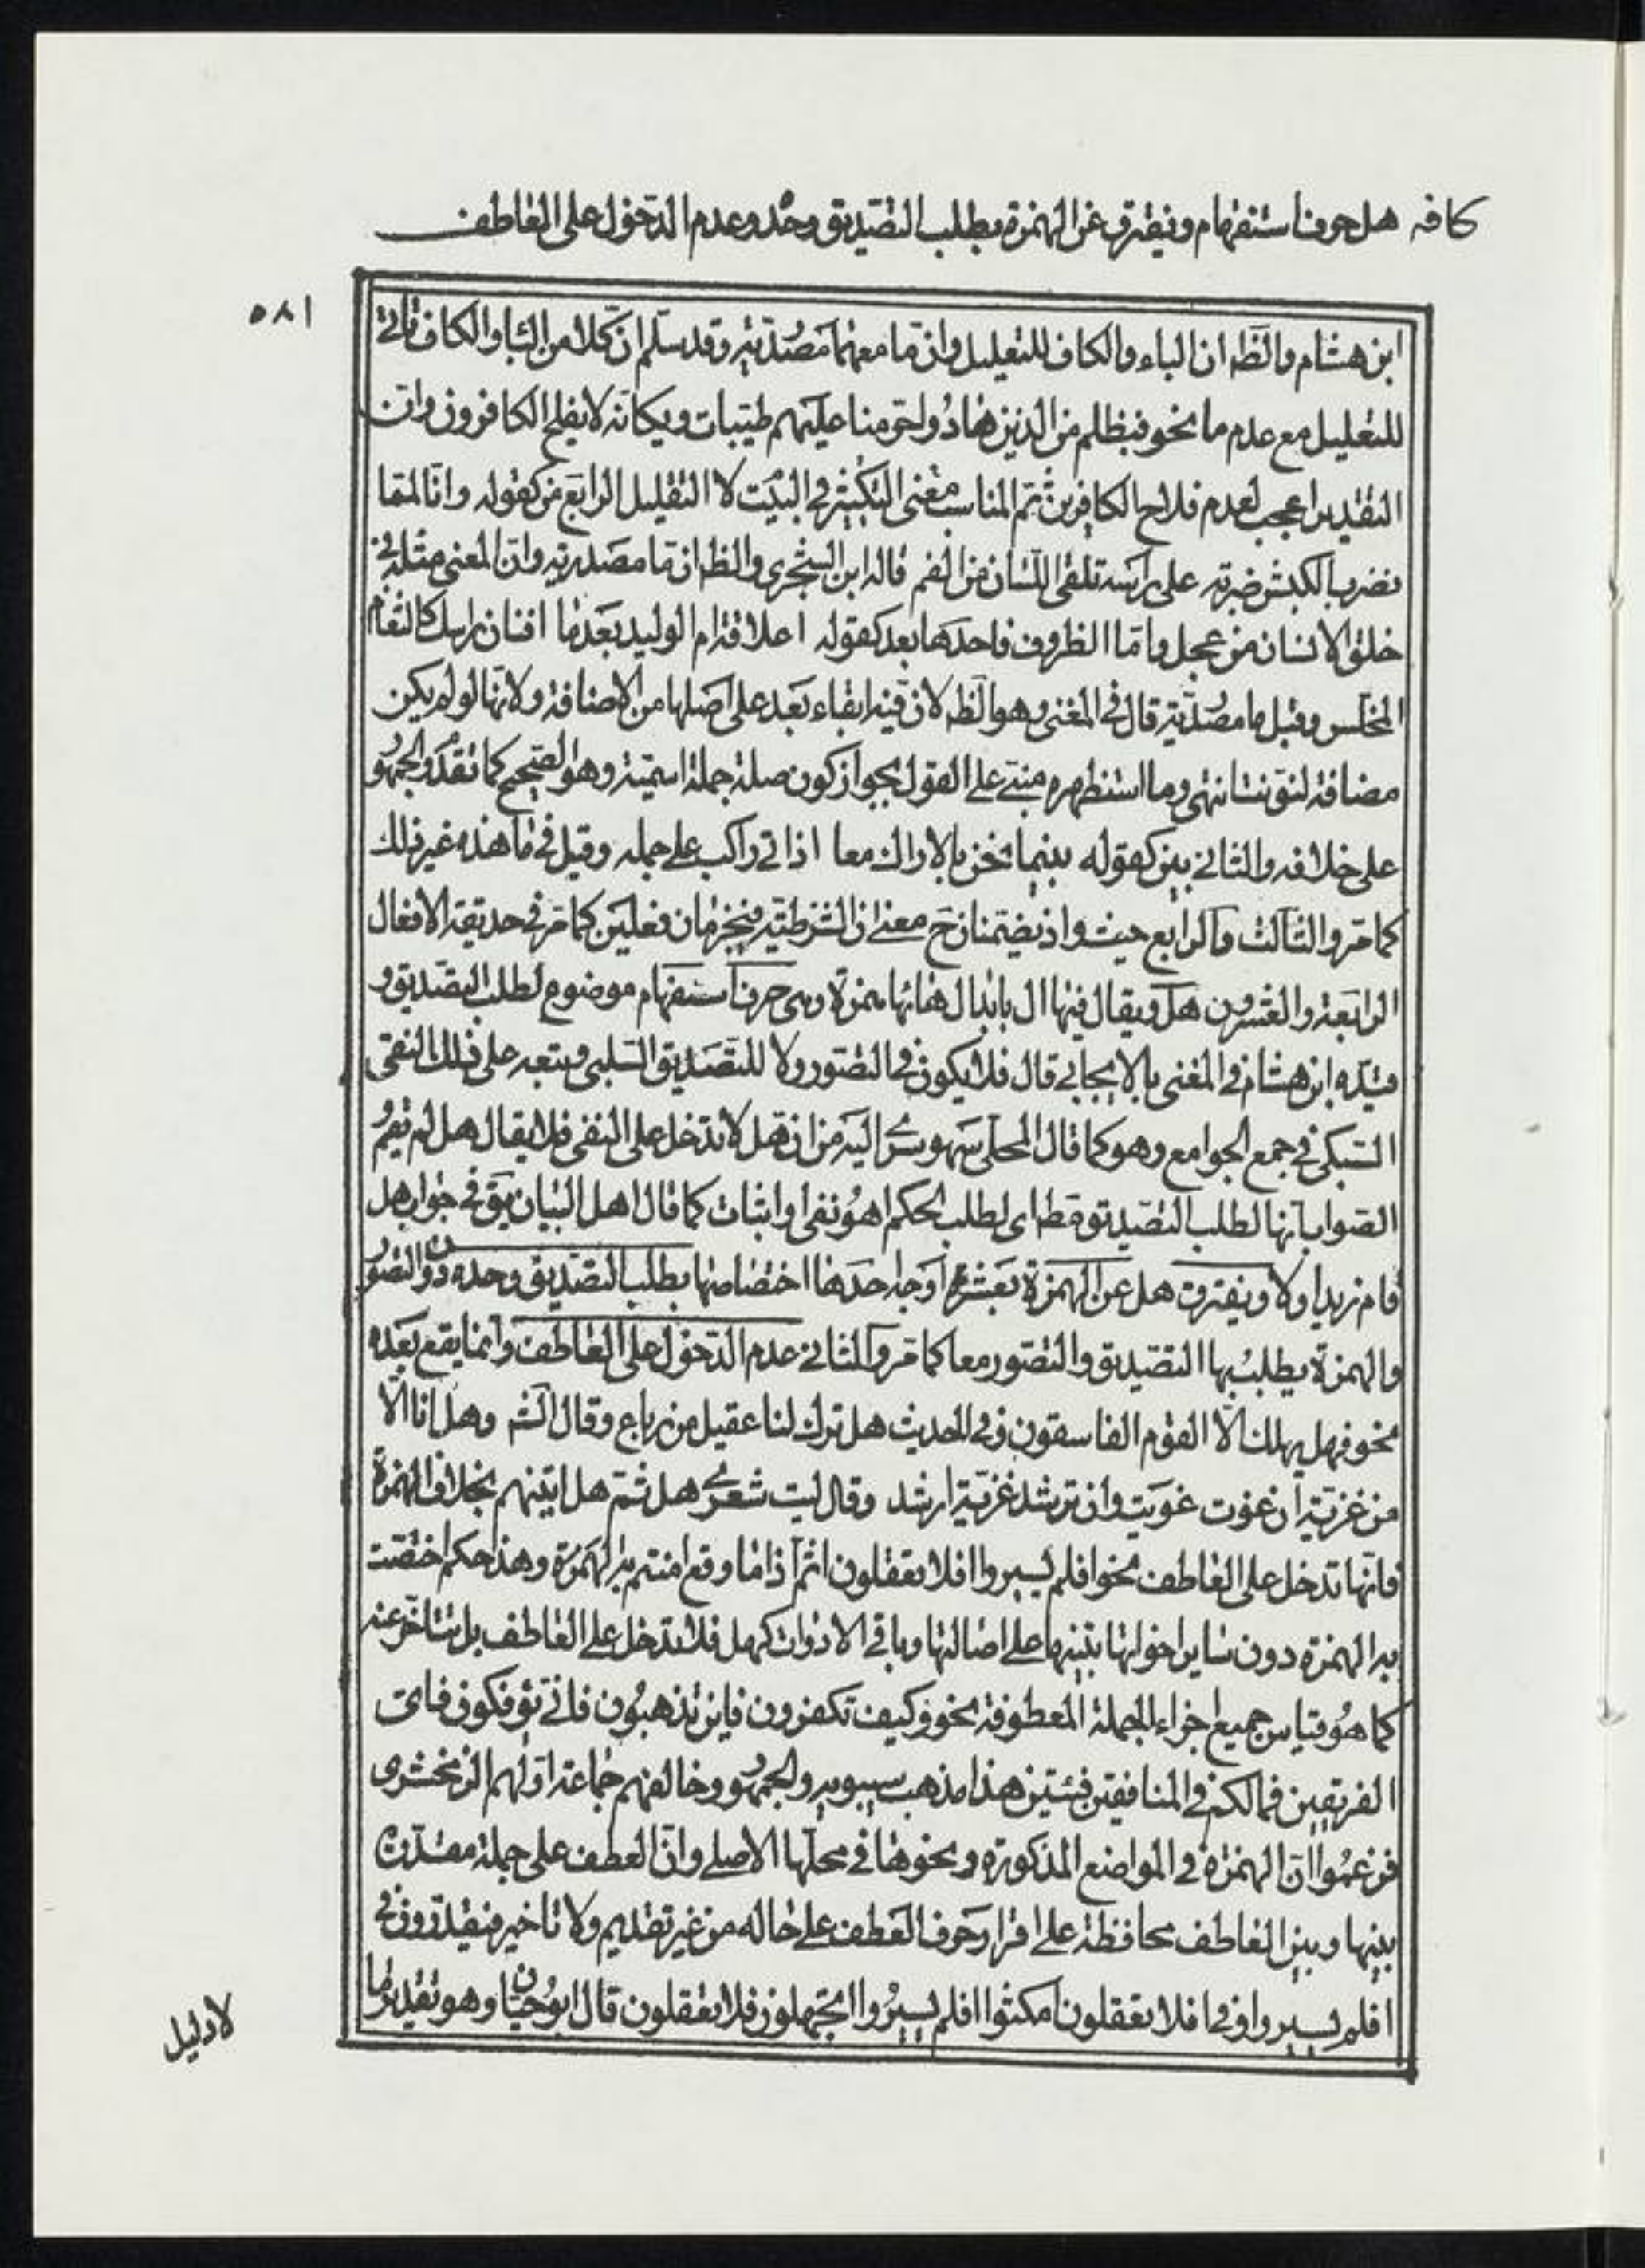 كافه هل حرف استفهام ويفترق عن الهمزة بطلب التصديق وحده وعدم الدخول على العاطف
٥٨١
ابن هشام والظه ان الباء والكاف للتعليل وان ما معهما مصدريه وقد سلم ان كلا من الباء والكاف ياتي
للتعليل مع عدم ما نحو فبظلم من الذين هادوا حرمنا عليهم طيبات ويكانه لا يفلح الكافرون وان
التقدير اعجب لعدم فلاح الكافرين ثم المناسب معنى التكثير في البيت لا التقليل الرابع من كقوله وانا لمما
نضرب الكبش ضربة على راسه تلقى اللسان من الفم قاله ابن الشجري والظه ان ما مصدرية وان المعنى مثله في
خلق الانسان من عجل واما الظروف فاحدها بعد كقوله اعلاقة ام الوليد بعد ما افنان راسك كالثغام
المخلس وقيل ما مصدرية قال في المغني وهو الظه لان فيه ابقاء بعد على اصلها من الاضافة ولانها لو لم يكن
مضافة لنونت انتهى وما استظهره مبني على القول بجواز كون صلة جملة اسمية وهو الصحيح كما تقدم والجمهور
على خلافه والثاني بين كقوله بينما نحن بالاراك معا اذ اتى راكب على جمله وقيل في ما هذه غير ذلك
كما مر والثالث والرابع حيث واذ يضمنان ح معنى ان الشرطية فيجزمان فعلين كما مر في حديقة الافعال
الرابعة والعشرون هل ويقال فيها ال بابدال هائها همزة وهي حرف استفهام موضوع لطلب التصديق و
قيده ابن هشام في المغني بالايجابي قال فلا يكون في التصور ولا للتصديق السلبي وتبعه على ذلك التقي
السبكي في جمع الجوامع وهو كما قال المحلى سهو سرى اليه من ان هل لا تدخل على النفي فلا يقال هل لم يقم
الصواب انها لطلب التصديق فقط اي لطلب الحكم اهو نفي او اثبات كما قال اهل البيان يق في جواب هل
قام زيد او لا ويفترق هل عن الهمزة بعشرة اوجه احدها اختصاصها بطلب التصديق وحده دون التصور
والهمزة يطلب بها التصديق والتصور معا كما مر والثاني عدم الدخول على العاطف وانما يقع بعده
نحو فهل يهلك الا القوم الفاسقون وفي الحديث هل ترك لنا عقيل من رباع وقال الشه وهل انا الا
من غزية ان غوت غويت وان ترشد غزية ارشد وقال ليت شعري هل ثم هل اتينهم بخلاف الهمزة
فانها تدخل على العاطف نحو افلم يسيروا افلا تعقلون اثم اذا ما وقع امنتم به الهمزة وهذا حكم اختصت
به الهمزه دون ساير اخواتها تنبيها على اصالتها وباقي الادوات كهل فلا تدخل على العاطف بل تتاخر عنه
كما هو قياس جميع اجزاء الجملة المعطوفة نحو وكيف تكفرون فاين تذهبون فاني تؤفكون فاي
الفريقين فما لكم في المنافقين فئتين هذا مذهب سيبويه والجمهور وخالفهم جماعة اولهم الزمخشري
فزعموا ان الهمزة في المواضع المذكورة ونحوها في محلها الاصلي وان العطف على جملة مقدرة
بينها وبين العاطف محافظة على اقرار حرف العطف على حاله من غير تقديم ولا تاخير فيقدرون في
افلم يسيروا وفي افلا تعقلون امكثوا افلم يسيروا اتجهلون فلا تعقلون قال ابو حيان وهو تقدير ما
لا دليل